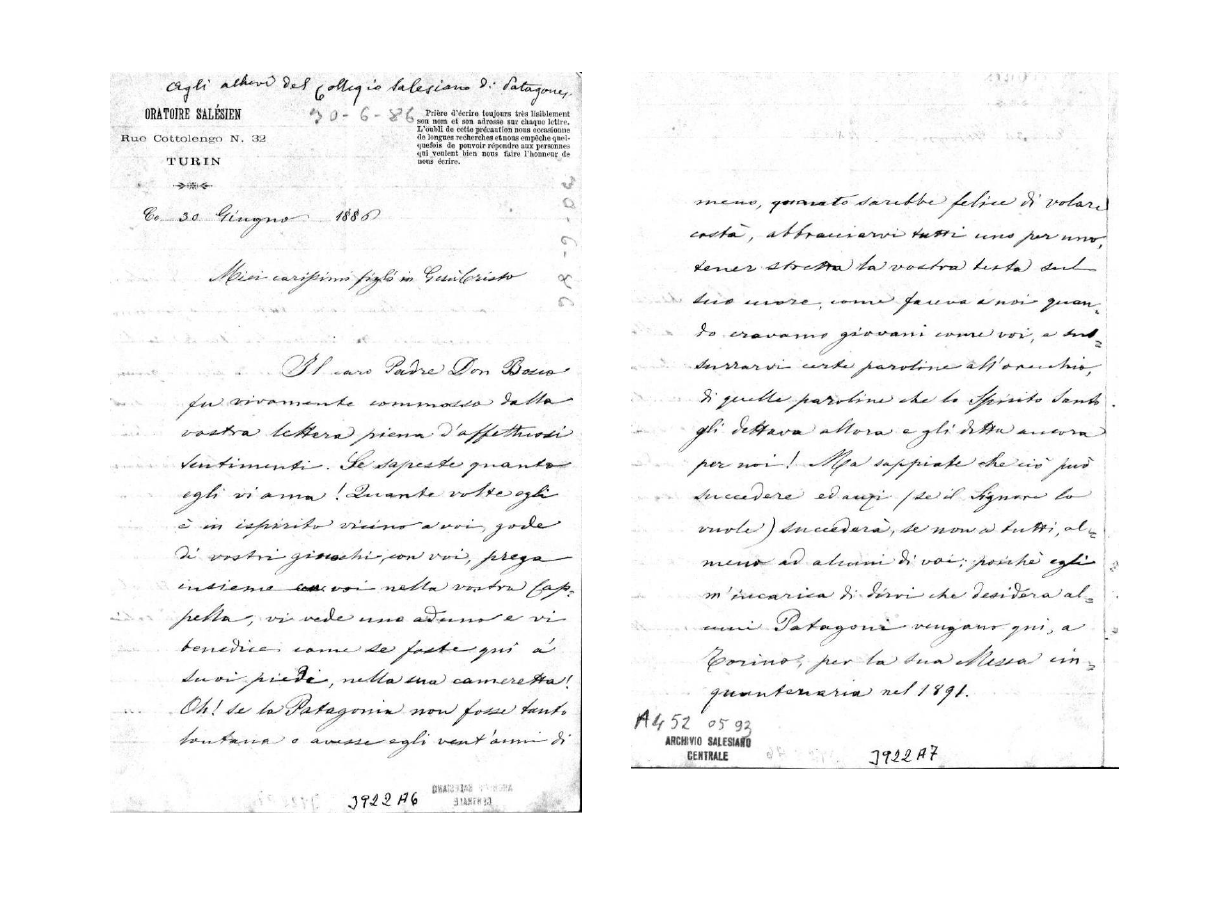 Agli allievi del Collegio Salesiano di Patagones.
ORATOIRE SALÉSIEN
Rue Cottolengo N. 32
TURIN
30-6-86
Prière d'écrire toujours très lisiblement
son nom et son adresse sur chaque lettre.
L'oubli de cette précaution nous occasionne
de longues recherches et nous empêche quel-
quefois de pouvoir répondre aux personnes
qui veulent bien nous faire l'honneur de
nous écrire.
30-6-86
30 Giugno 1886
Miei carissimi figli in Gesù Cristo
Il caro Padre Don Bosco
fu vivamente commosso dalla
vostra lettera piena d'affettuosi
sentimenti. Se sapeste quanto
egli vi ama! Quante volte egli
è in ispirito vicino a voi, gode
di vostri giuochi con voi, prega
insieme con voi nella vostra Cap=
pella, vi vede una aduno e vi
benedice come se foste qui a'
suoi piedi, nella sua cameretta!
Oh! se la Patagonia non fosse tanto
lontana o avesse egli vent'anni di
J922A6
ARCHIVIO SALESIANO
CENTRALE
meno, quanto sarebbe felice di volare
costà, abbracciarvi tutti uno per uno,
tener stretta la vostra testa sul
suo cuore, come faceva a noi quan=
do eravamo giovani come voi, e sus=
surrarvi certe paroline all'orecchio,
di quelle paroline che lo Spirito Santo
gli dettava allora e gli detta ancora
per noi! Ma sappiate che ciò può
succedere ed anzi (se il Signore lo
vuole) succederà, se non a tutti, al=
meno ad alcuni di voi; poichè egli
m'incarica di dirvi che desidera al=
cuni Patagoni vengano qui, a
Torino, per la sua Messa cin=
quantenaria nel 1891.
A452 05 93
ARCHIVIO SALESIANO
CENTRALE
J922A7